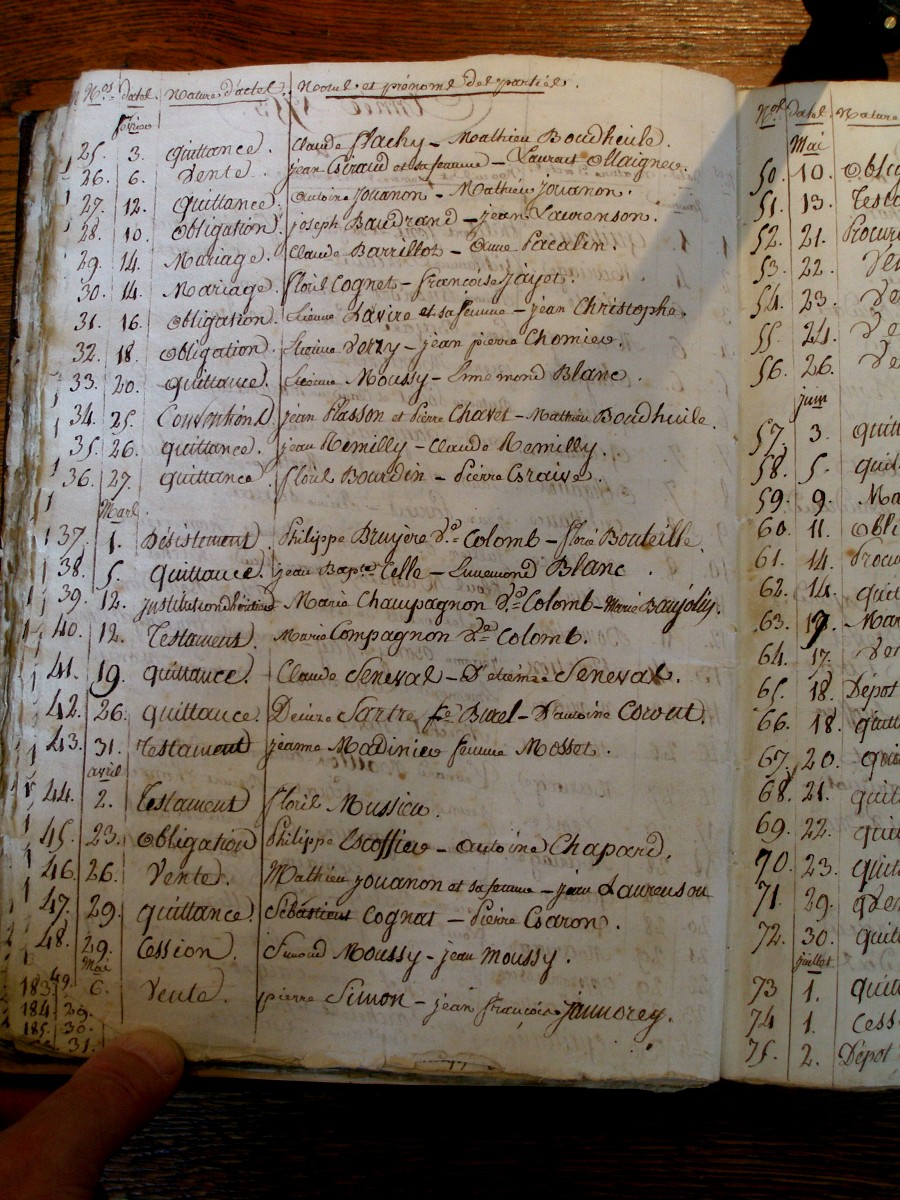 Nos. dates. Nature d'actes. Noms et prénoms des parties.
février
25. 3. quittance. Claude Flachy - Mathieu Boudheille.
26. 6. Vente. jean Giraud et sa femme - Laurent
27. 12. quittance. antoine Jouanon - Mathieu Jouanon.
28. 10. obligation. joseph Baudrand - jean Laurenson.
29. 14. Mariage. Claude Barrillot - Anne Pacalin.
30. 14. Mariage. floris Cognet - françoise Jayet.
31. 16. obligation. Etienne Lavire et sa femme - jean Christophe.
32. 18. obligation. Etienne Verzy - jean pierre Chomier.
33. 20. quittance. Etienne Moussy - Ennemond Blanc.
34. 25. Conventions jean Plasson et Pierre Chavet - Mathieu Boudheille.
35. 26. quittance. jean Remilly - Claude Remilly.
36. 27. quittance floris Bourdin - Pierre
Mars.
37. 1. Désistement. Philippe Bruyere Ve. Colomb - floris Bouteille.
38. 5. quittance. jean Bapte. Telle - Ennemond Blanc.
39. 12. institution d'héritier Marie Champagnon Ve. Colomb - Marie Baujolin.
40. 12. Testament. Marie Compagnon Ve. Colomb.
41. 19. quittance. Claude Seneval - D'etienne Seneval.
42. 26. quittance. Sartre fe. Burel - D'antoine
43. 31. Testament jeanne Modinier femme Mosset.
avril
44. 2. Testament floris Mussieu.
45. 23. obligation Philippe Escoffier - antoine Chapard.
46. 26. Vente. Mathieu jouanon et sa femme - jean Laurenson
47. 29. quittance. Sébastient Cognat - Pierre Caron.
48. 29. Cession. Moussy - jean Moussy.
Mai
49. 6. Vente. pierre Simon - jean françois
183
184 29.
185. 30.
31.
Nos. dates. Nature
Mai
50. 10. oblig
51. 13. Testa
52. 21. Procur
53. 22. Ven
54. 23. Ve
55. 24. Ve
56. 26. Ve
juin
57. 3. quitt
58. 5. quit
59. 9. Ma
60. 11. obli
61. 14. Procu
62. 14. quit
63. 17. Mar
64. 17. Ven
65. 18. Dépot
66. 18. quitt
67. 20. quit
68. 21. quit
69. 22. quit
70. 23. quit
71. 29. Ven
72. 30. quit
juillet
73 1. quit
74 1. Cess
75. 2. Dépot